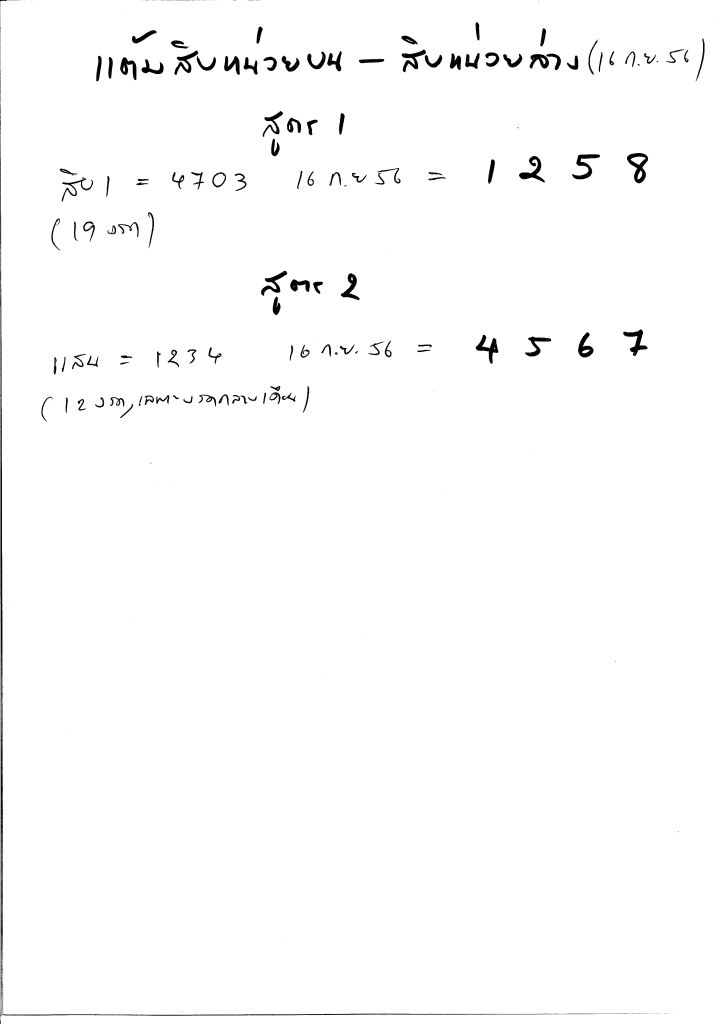 แต้มสิบหน่วยบน - สิบหน่วยล่าง (16 ก.ย. 56)
สูตร 1
สิบ 1 = 4703 16 ก.ย 56 = 1 2 5 8
(19 งวด)
สูตร 2
แสน = 1234 16 ก.ย. 56 = 4 5 6 7
(12 งวด, เฉพาะงวดกลางเดือน)